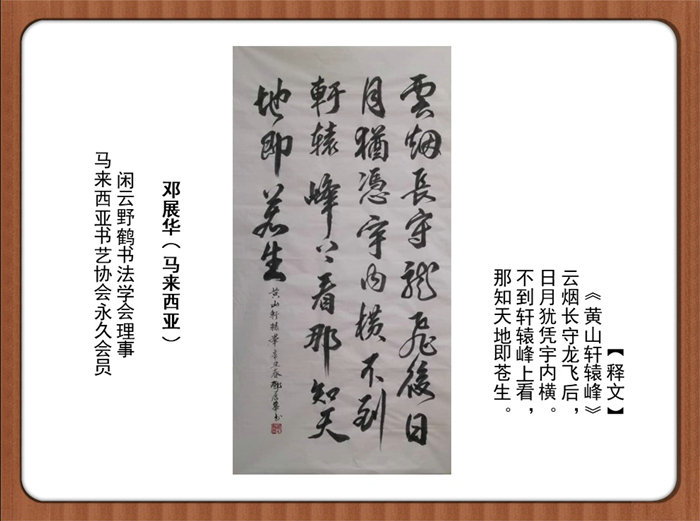 【释文】
《黄山轩辕峰》
云烟长守龙飞后，
日月犹凭宇内横。
不到轩辕峰上看，
那知天地即苍生。
雲烟長守龍飛後日
月猶憑宇内横不到
軒辕峰上看那知天
地即苍生
黄山轩辕峯辛丑春邓展華书
邓展华（马来西亚）
闲云野鹤书法学会理事
马来西亚书艺协会永久会员